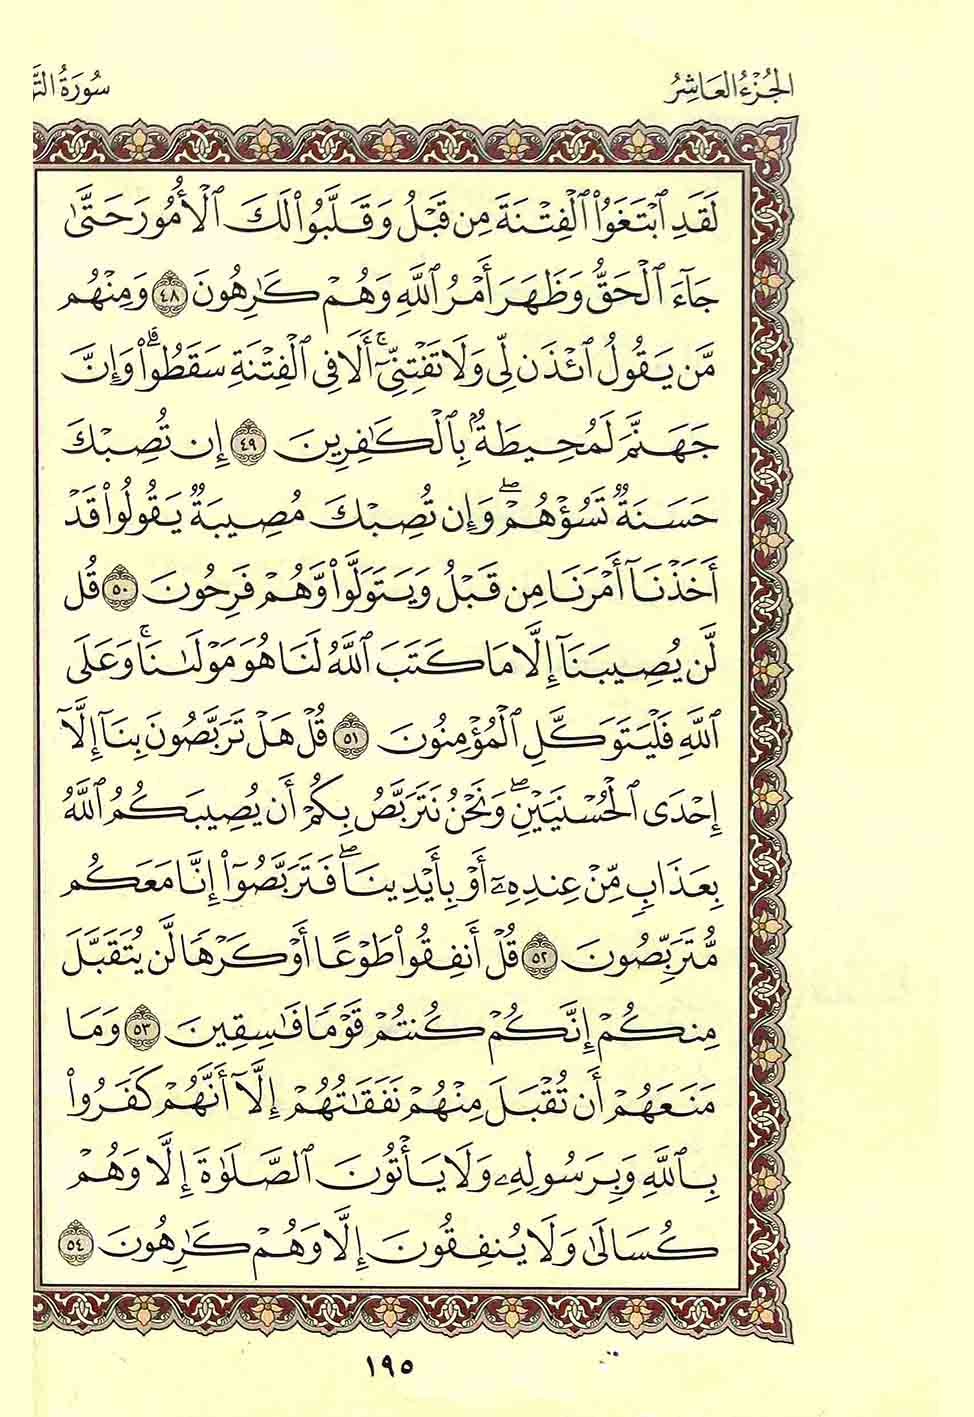 الجُزْءُ العَاشِرُ
سُورَةُ التَّ
لَقَدِ ٱبْتَغَوُا۟ ٱلْفِتْنَةَ مِن قَبْلُ وَقَلَّبُوا۟ لَكَ ٱلْأُمُورَ حَتَّىٰ
جَآءَ ٱلْحَقُّ وَظَهَرَ أَمْرُ ٱللَّهِ وَهُمْ كَـٰرِهُونَ ٤٨ وَمِنْهُم
مَّن يَقُولُ ٱئْذَن لِّى وَلَا تَفْتِنِّىٓ ۚ أَلَا فِى ٱلْفِتْنَةِ سَقَطُوا۟ ۗ وَإِنَّ
جَهَنَّمَ لَمُحِيطَةٌۢ بِٱلْكَـٰفِرِينَ ٤٩ إِن تُصِبْكَ
حَسَنَةٌ تَسُؤْهُمْ ۖ وَإِن تُصِبْكَ مُصِيبَةٌ يَقُولُوا۟ قَدْ
أَخَذْنَآ أَمْرَنَا مِن قَبْلُ وَيَتَوَلَّوا۟ وَّهُمْ فَرِحُونَ ٥٠ قُل
لَّن يُصِيبَنَآ إِلَّا مَا كَتَبَ ٱللَّهُ لَنَا هُوَ مَوْلَىٰنَا ۚ وَعَلَى
ٱللَّهِ فَلْيَتَوَكَّلِ ٱلْمُؤْمِنُونَ ٥١ قُلْ هَلْ تَرَبَّصُونَ بِنَآ إِلَّآ
إِحْدَى ٱلْحُسْنَيَيْنِ ۖ وَنَحْنُ نَتَرَبَّصُ بِكُمْ أَن يُصِيبَكُمُ ٱللَّهُ
بِعَذَابٍ مِّنْ عِندِهِۦٓ أَوْ بِأَيْدِينَا ۖ فَتَرَبَّصُوٓا۟ إِنَّا مَعَكُم
مُّتَرَبِّصُونَ ٥٢ قُلْ أَنفِقُوا۟ طَوْعًا أَوْ كَرْهًا لَّن يُتَقَبَّلَ
مِنكُمْ إِنَّكُمْ كُنتُمْ قَوْمًا فَـٰسِقِينَ ٥٣ وَمَا
مَنَعَهُمْ أَن تُقْبَلَ مِنْهُمْ نَفَقَـٰتُهُمْ إِلَّآ أَنَّهُمْ كَفَرُوا۟
بِٱللَّهِ وَبِرَسُولِهِۦ وَلَا يَأْتُونَ ٱلصَّلَوٰةَ إِلَّا وَهُمْ
كُسَالَىٰ وَلَا يُنفِقُونَ إِلَّا وَهُمْ كَـٰرِهُونَ ٥٤
١٩٥